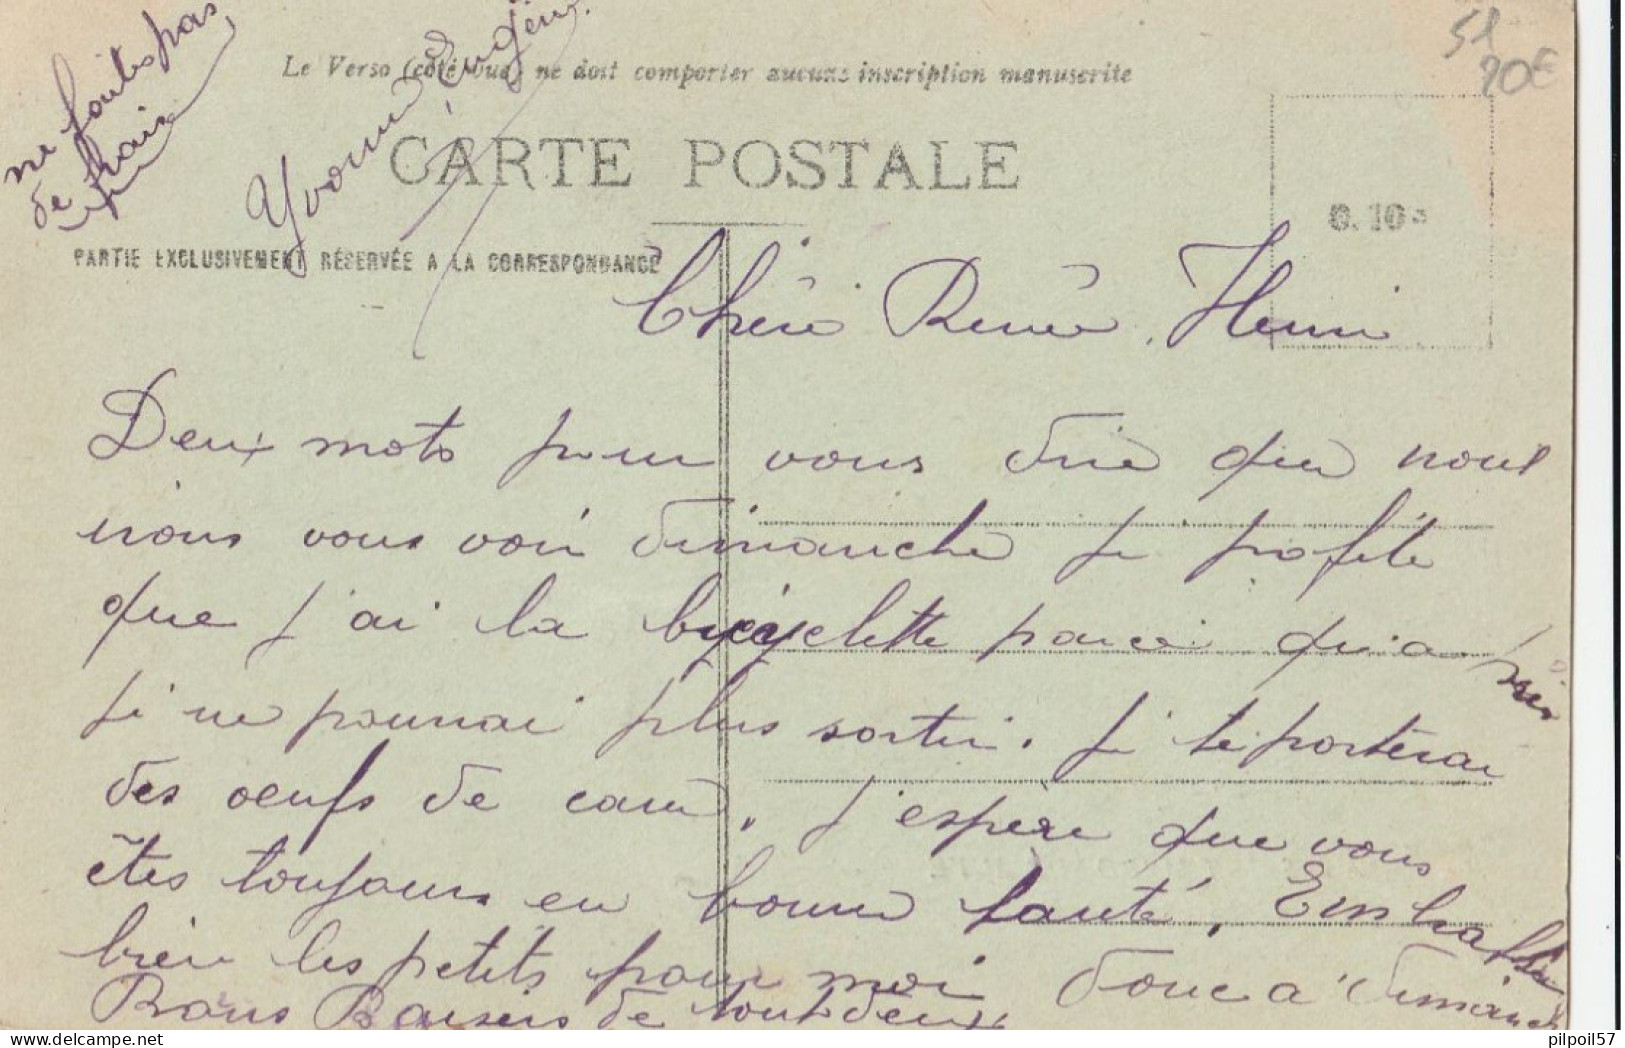 ne faites pas
de frais
Yvonne Eugène
51
20€
Le Verso (côté vue) ne doit comporter aucune inscription manuscrite
CARTE POSTALE
0.10
PARTIE EXCLUSIVEMENT RÉSERVÉE A LA CORRESPONDANCE
Chère Renée, Henri
Deux mots pour vous dire que nous
irons vous voir dimanche je profite
que j'ai la bicyclette parce qu'a
je ne pourrai plus sortir. Je te porterai
des oeufs de cane. J'espère que vous
êtes toujours en bonne santé. Embrasse
bien les petits pour moi donc a dimanche
Bons Baisers de tout deux
pilpoil57